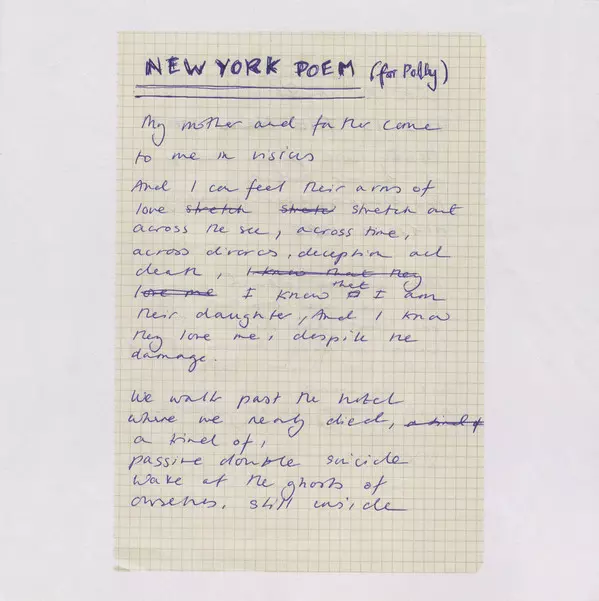 NEW YORK POEM (for Polly)
My mother and father come
to me in visions
And I can feel their arms of
love stretch stretch stretch out
across the sea, across time,
across divorces, deception and
death, I know that they
love me I know that I am
their daughter, And I know
they love me, despite the
damage.
We walk past the hotel
where we nearly died, a kind of
a kind of,
passive double suicide
Wave at the ghosts of
ourselves, still inside